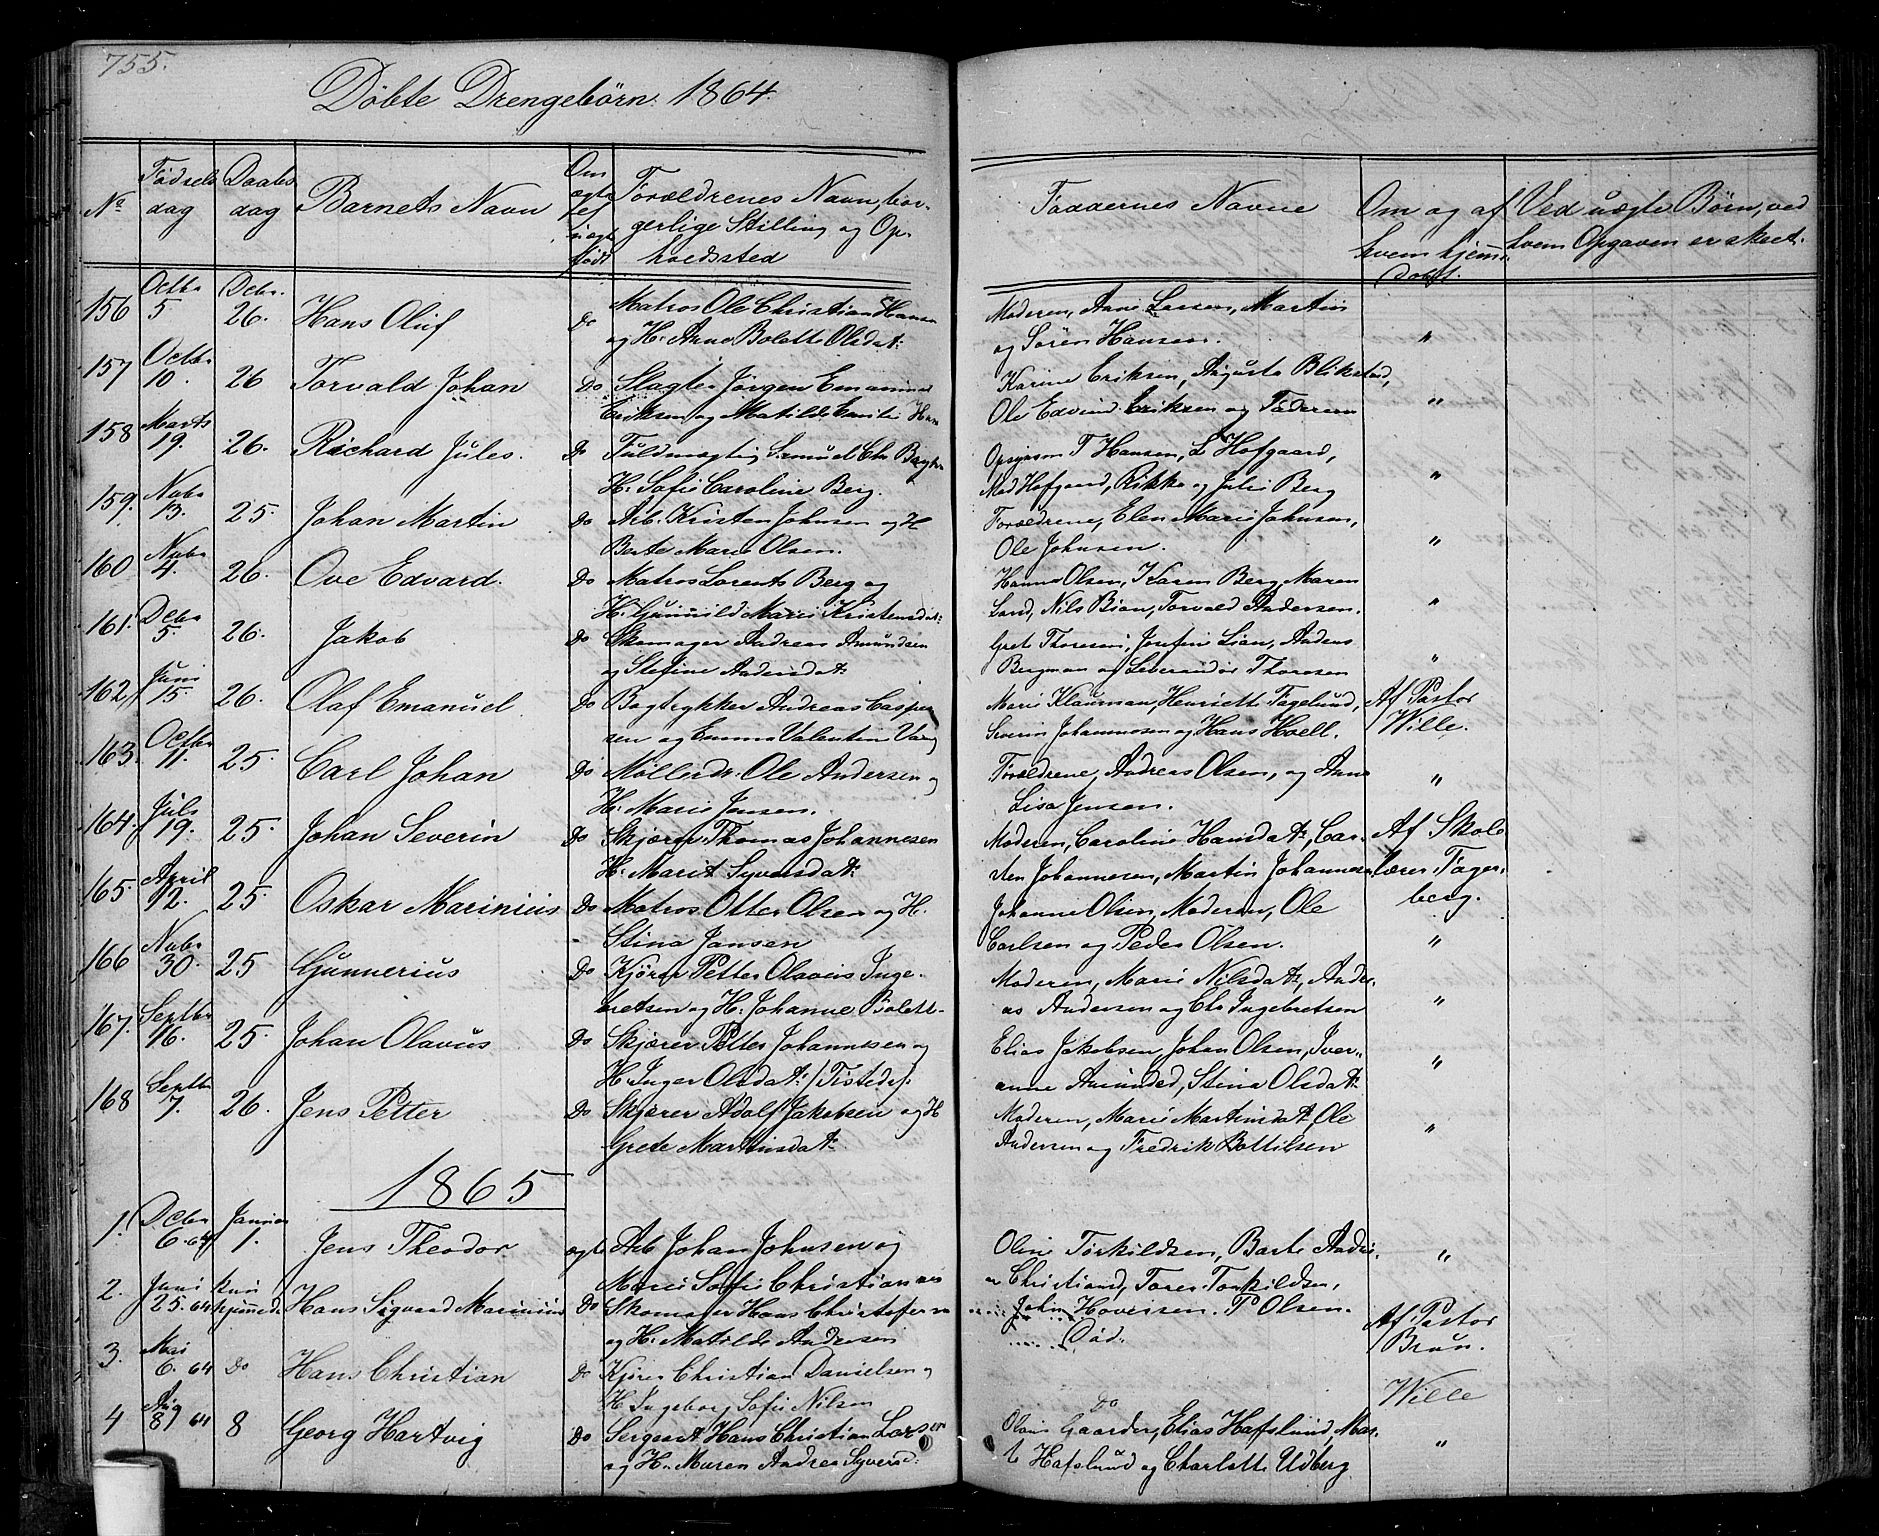 755.
Döbte Drengebörn. 1864.
No
Födsels dag
Daabs dag
Barnets Navn
Om ægte el uægte födt
Forældrenes Navn, bor-
gerlige Stilling og Op-
holdssted
Faddernes Navne
Om og af hvem hjemmedöbt.
Ved uægte Børn, ved
hvem Opgaven er skeet.
156 Octbr 5 Decbr. 26. Hans Oluf Do Matros Ole Christian Hansen
og H. Anne Bolette Olsdat:
Moderen, Anne Larsen, Martin
og Sören Hansen. "
157 Octbr 10. 26 Torvald Johan Do Slagter Jörgen Emanuel
Eriksen og Matilde Emilie
Karine Eriksen, Augusta Blikstad,
Ole Edvind Eriksen og Faderen "
158 Marts 19. 26. Richard Jules. Do Fuldmægtig Samuel Chr
H. Sofie Caroline Berg.
T Hansen, L Hofgaard,
Mad Hofgaard, Rikka og Julie Berg "
159. Novbr 13. 25. Johan Martin Do Arb. Kristen Johnsen og H
Berte Marie Olsen.
Forældrene, Elen Marie Johnsen,
Ole Johnsen. "
160 Novbr 4. 26. Ove Edvard. Do Matros Lorents Berg og
H. Gunnild Marie Kristensdat:
Hanna Olsen, Karen Berg, Maren
Lund, Nils Bian, Torvald Andersen. "
161. Decbr 5. 26. Jakob Do Skomager Andreas Amundsen
og Stefine Andersdat
Gret Thoresen, Josefine Lian, Anders
Bergman og Leverandör Thoresen "
162 Juni 15. 26. Olaf Emanuel Do Bogtrykker Andreas Casper
sen og Emma Valentin
Marie Klausman, Henriette Fagelund,
Severin Johannesen og Hans Hoell.
Af Pastor
Wille.
163. Octbr 11. 25. Carl Johan Do Möllerdr. Ole Andersen og
H. Marie Jensen.
Forældrene, Andreas Olsen, og Anne
Lisa Jensen. "
164. Juli 19. 25. Johan Severin Do Skjærer Thomas Johannesen
H. Marit Syversdat:
Moderen, Caroline Hansdat:, Car-
sten Johannesen, Martin Johannesen
Af Skole
lærer Fager-
berg.
165. April 12. 25. Oskar Marinius Do Matros Otter Olsen og H.
Stina Jansen
Johanne Olsen, Moderen, Ole
Carlsen og Peder Olsen. "
166 Novbr 30. 25 Gunnerius Do Kjörer Petter Olavus Inge-
bretsen og H. Johanne Bolett-
Moderen, Marie Nilsdat:, Andre-
as Andersen og Chr Ingebretsen "
167. Septbr 16. 25. Johan Olavus Do Skjærer Petter Johannesen og
H. Inger Olsdat: (Tistedal).
Elias Jakobsen, Johan Olsen, Iver-
anne Amundsd, Stina Olsdat: "
168 Septbr 7. 26. Jens Petter Do Skjærer Adolf Jakobsen og H
Grete Martinsdat:
Moderen, Marie Martinsdat: Ole
Andersen og Fredrik Bottilsen "
1865
1. Decbr 6. 64 Januar 1. Jens Theodor ægte Arb Johan Johnsen og
Marie Sofie Christiansen
Oline Torkildsen, Berte Andre-
a Christiansd, Tores Torkildsen,
John Hovelsen. P Olsen. "
2. Juni 25. 64 kun hjemmed. Hans Sigvard Marinius Do Skomager Hans Christofersen
og H. Matilde Andresen
Död.
Af Pastor
Brun.
3. Mai 6. 64 Do Hans Christian Do Kjörer Christian Danielsen og
H Ingeborg Sofie Nilsen
Do
Wille
4 Aug 8/ 64 8 Georg Hartvig Do Sergeant Hans Christian Larsen
og H. Maren Andrea Syversd:
Olaus Gaarder, Elias Hafslund, Mar-
t Hafslund og Charlotte Udberg "